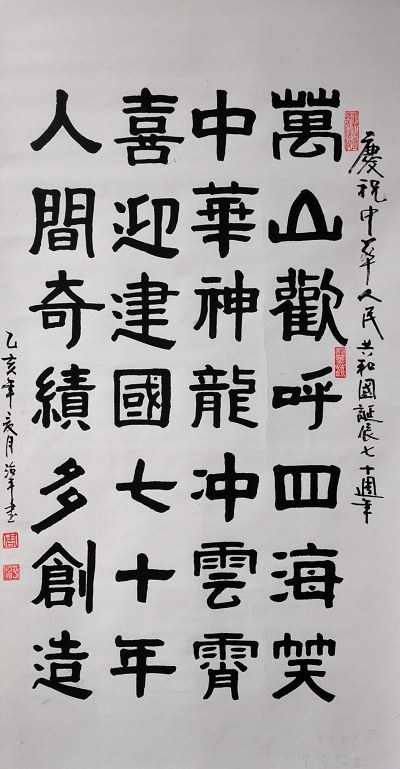 慶祝中華人民共和國誕辰七十週年
萬山歡呼四海笑
中華神龍冲雲霄
喜迎建國七十年
人間奇績多創造
乙亥年 月 书